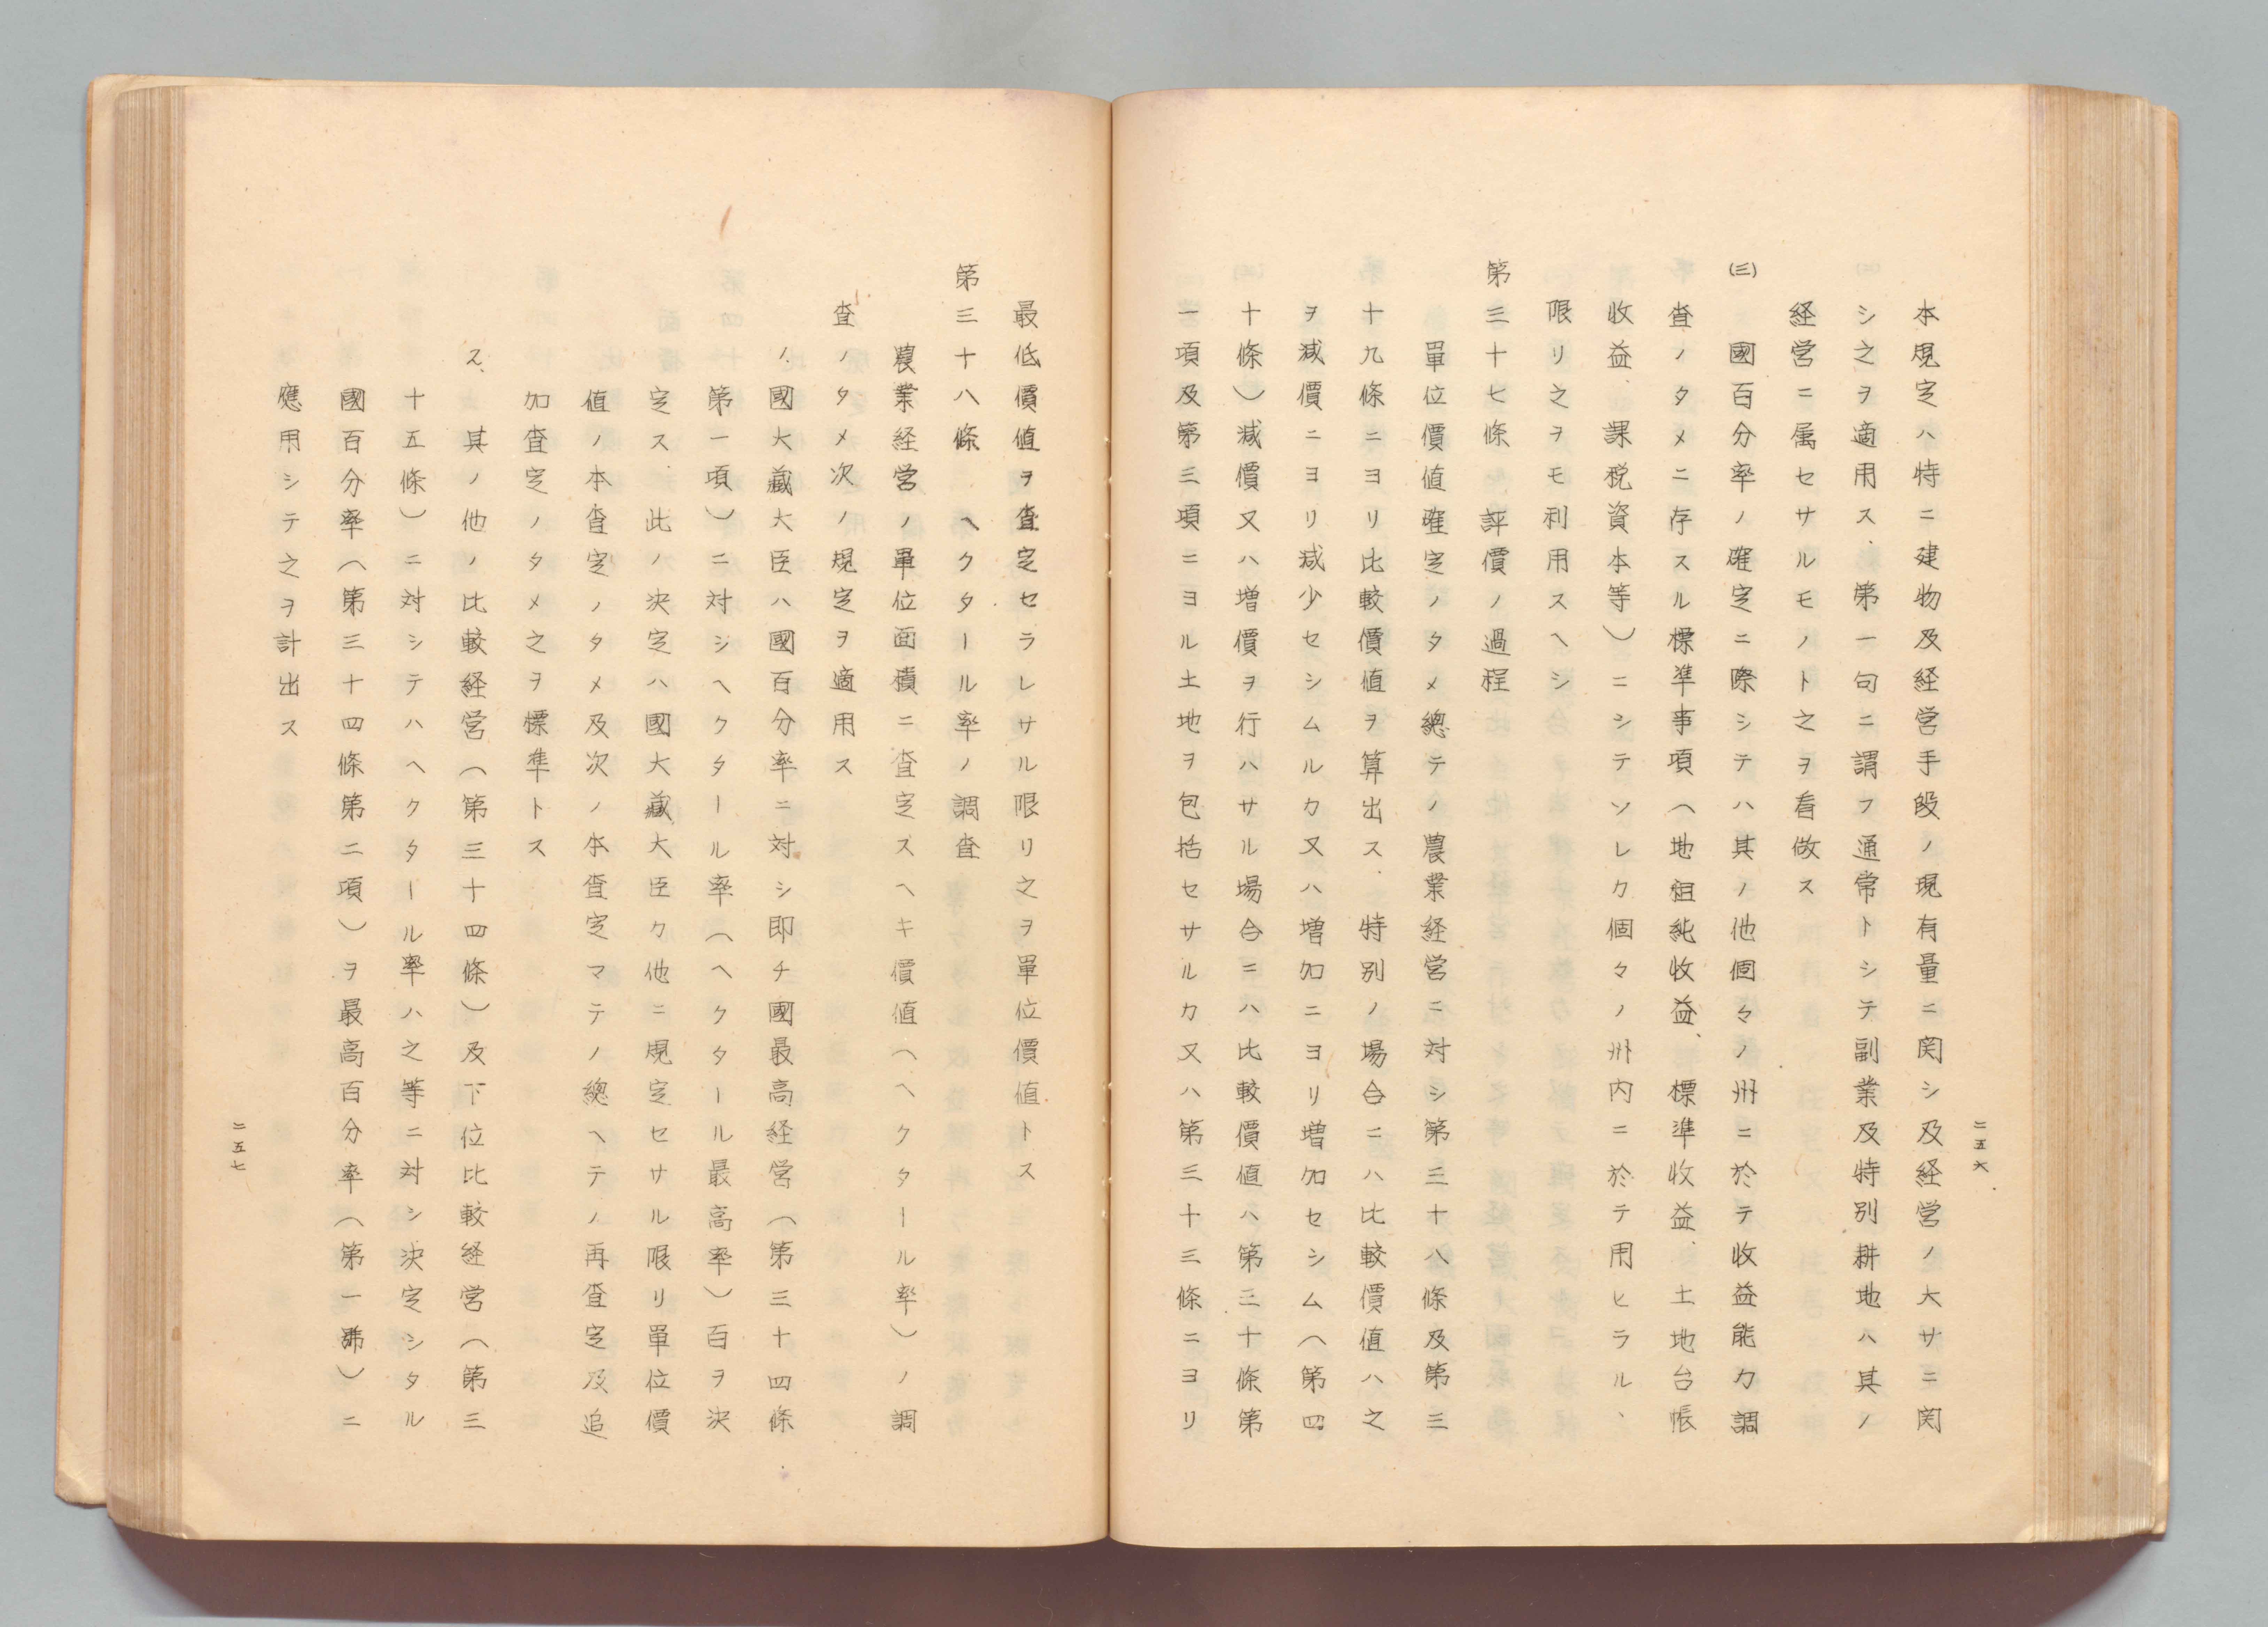 二五六
本規定ハ特ニ建物及経営手段ノ現有量ニ関シ及経営ノ大サニ関
シ之ヲ適用ス、第一句ニ謂フ通常トシテ副業及特別耕地ハ其ノ
経営ニ属セサルモノト之ヲ看做ス
(三) 國百分率ノ確定ニ際シテハ其ノ他個々ノ州ニ於テ收益能力調
査ノタメニ存スル標準事項(地租純收益、標準收益、土地台帳
收益、課税資本等)ニシテソレカ個々ノ州内ニ於テ用ヒラル、
限リ之ヲモ利用スヘシ
第三十七條 評價ノ過程
單位價値確定ノタメ總テノ農業経営ニ対シ第三十八條及第三
十九條ニヨリ比較價値ヲ算出ス、特別ノ場合ニハ比較價値ハ之
ヲ減價ニヨリ減少セシムルカ又ハ増加ニヨリ増加セシム(第四
十條)減價又ハ増價ヲ行ハサル場合ニハ比較價値ハ第三十條第
一項及第三項ニヨル土地ヲ包括セサルカ又ハ第三十三條ニヨリ
最低價値ヲ査定セラレサル限リ之ヲ單位價値トス
第三十八條 ヘクタール率ノ調査
農業経営ノ單位面積ニ査定スヘキ價値(ヘクタール率)ノ調
査ノタメ次ノ規定ヲ適用ス
ノ、國大藏大臣ハ國百分率ニ対シ即チ國最高経営(第三十四條
第一項)ニ対シヘクタール率(ヘクタール最高率)百ヲ決
定ス、此ノ決定ハ國大藏大臣カ他ニ規定セサル限リ單位價
値ノ本査定ノタメ及次ノ本査定マテノ總ヘテノ再査定及追
加査定ノタメ之ヲ標準トス
ス、其ノ他ノ比較経営(第三十四條)及下位比較経営(第三
十五條)ニ対シテハヘクタール率ハ之等ニ対シ決定シタル
國百分率(第三十四條第二項)ヲ最高百分率(第一号)ニ
應用シテ之ヲ計出ス
二五七